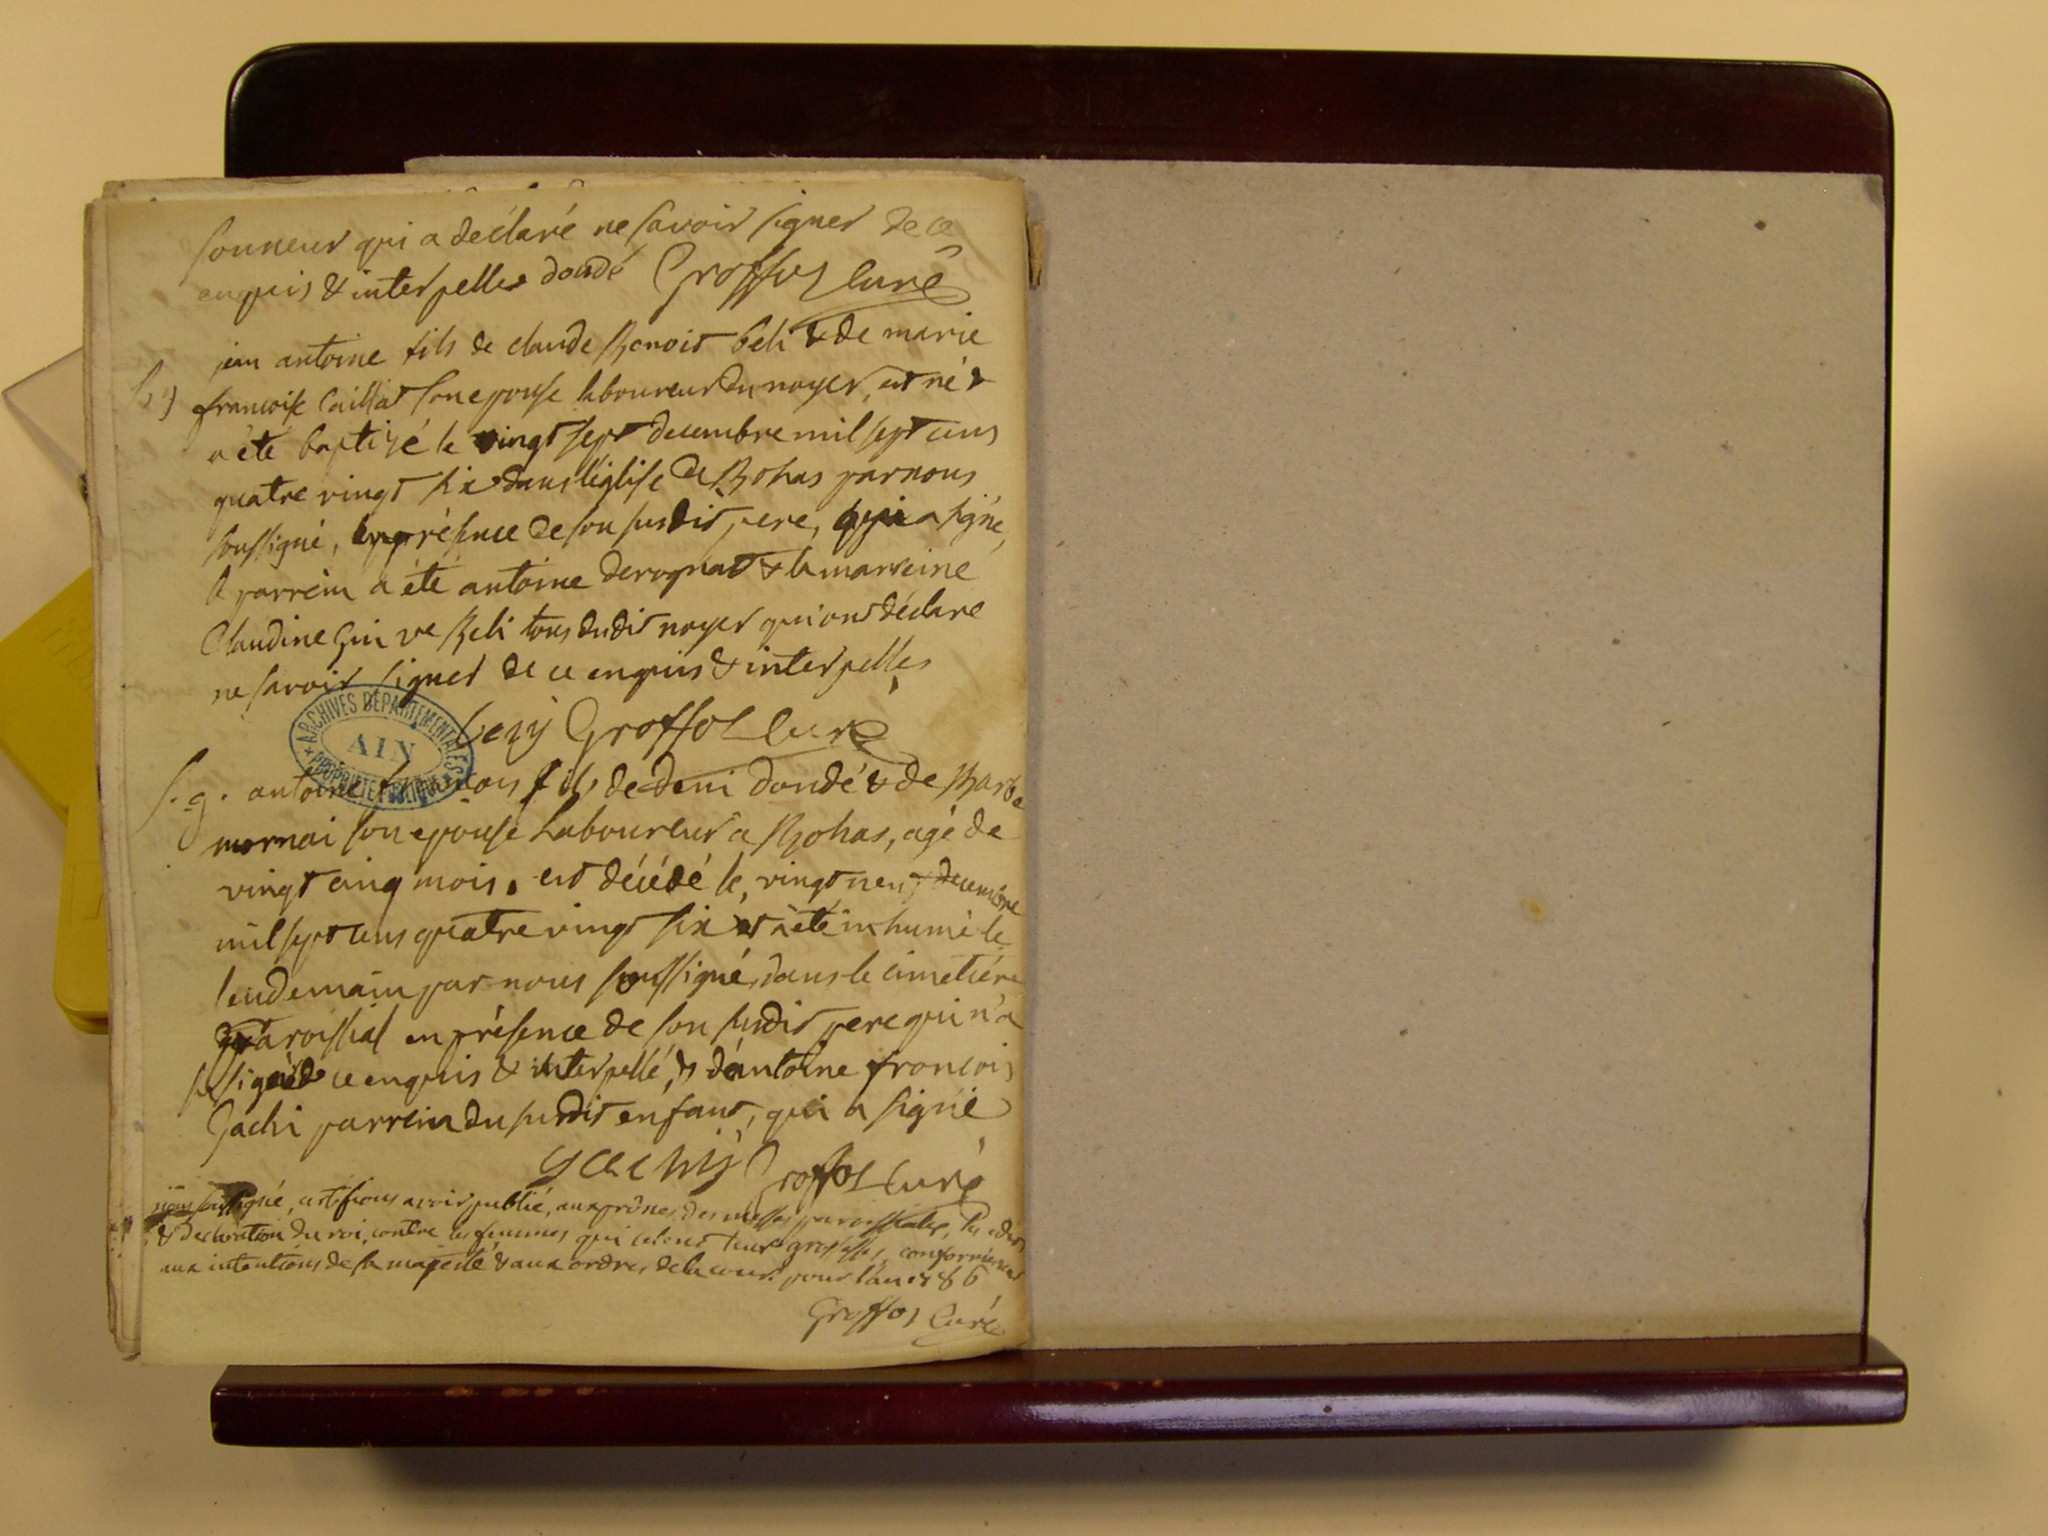 sonneur qui a déclaré ne savoir signer de ce
enquis & interpellé dondé Groffoz Curé
jean antoine fils de claude Benoit beli & de marie
francoise Caillat son epouse laboureur du noyer, est né &
a été baptisé le vingt sept decembre mil sept cens
quatre vingt six dans l'église de Bohas par nous
soussigné, en présence de son susdit pere, qui a signé,
le parrein a été antoine derognat & la marreine
Claudine Gui ve Beli tous dudit noyer qui ont déclaré
ne savoir signer de ce enquis & interpellés
ARCHIVES DÉPARTEMENTALES
AIN
PROPRIÉTÉ PUBLIQUE
Groffoz Curé
s. g. antoine françois fils de deni dondé & de Barbe
mornai son epouse Laboureur a Bohas, agé de
vingt cinq mois. est décédé le vingt neuf decembre
mil sept cens quatre vingt six et a été inhumé le
lendemain par nous soussigné, dans le cimetiére
paroissial en présence de son susdit pere qui n'a
signé de ce enquis & interpellé, & d'antoine francois
Gachi parrein du susdit enfant, qui a signé
gachiy Groffoz Curé
nous soussigné, certifions avoir publié, aux prônes des messes paroissiales, les edits
& Declaration du roi, contre les femmes qui celent leurs grossesses, conformément
aux intentions de sa majesté & aux ordres de la cour. pour l'an 1786
Groffoz Curé